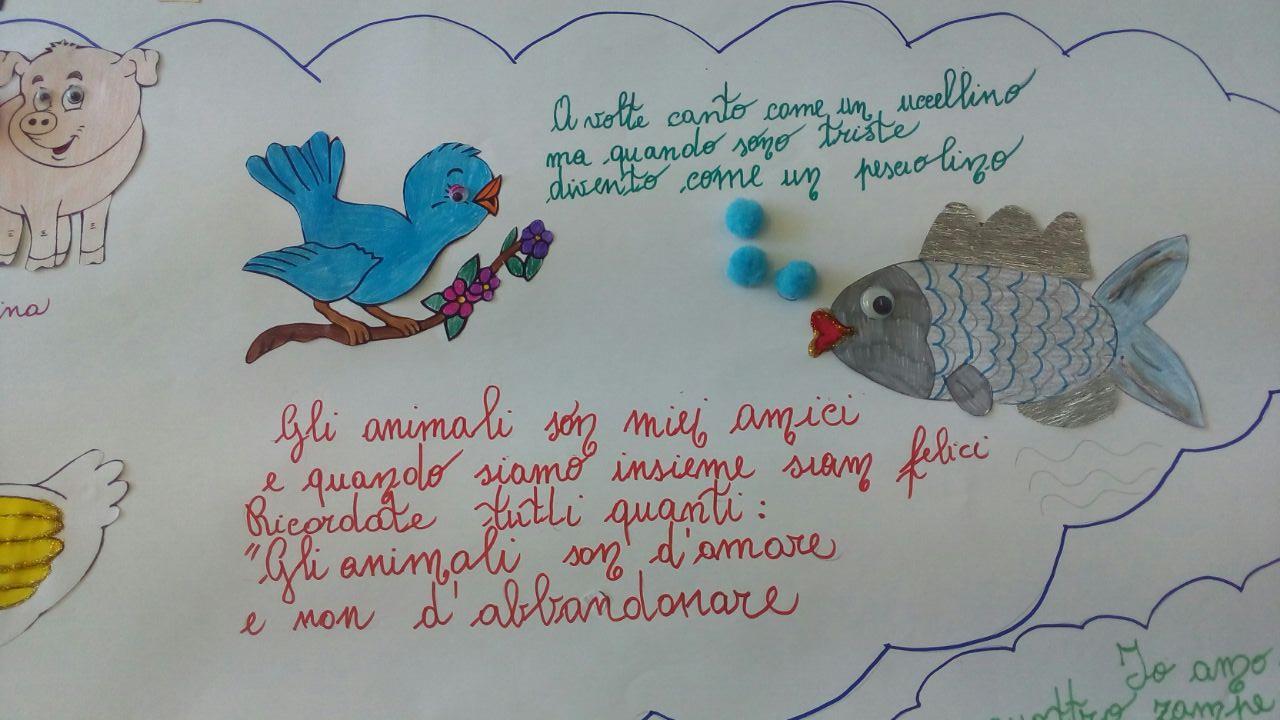 A volte canto come un uccellino
ma quando sono triste
divento come un pesciolino
ina
Gli animali son miei amici
e quando siamo insieme siam felici
Ricordate tutti quanti:
"Gli animali son d'amare
e non d'abbandonare
Io amo
quattro zampe